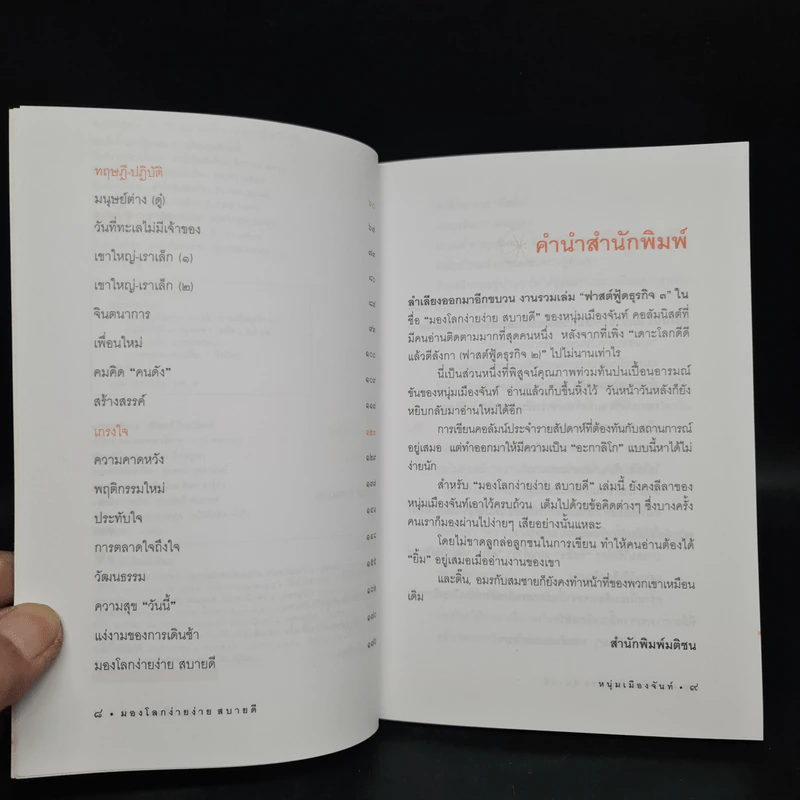 ทฤษฎี-ปฏิบัติ
มนุษย์ต่าง (ดู๋)
วันที่ทะเลไม่มีเจ้าของ
เขาใหญ่-เราเล็ก (๑)
เขาใหญ่-เราเล็ก (๒)
จินตนาการ
เพื่อนใหม่
คมคิด “คนดัง”
สร้างสรรค์
เกรงใจ
ความคาดหวัง
พฤติกรรมใหม่
ประทับใจ
การตลาดใจถึงใจ
วัฒนธรรม
ความสุข “วันนี้”
แง่งามของการเดินช้า
มองโลกง่ายง่าย สบายดี
๘ • มองโลกง่ายง่าย สบายดี
คำนำสำนักพิมพ์
ลำเลียงออกมาอีกขบวน งานรวมเล่ม “ฟาสต์ฟู้ดธุรกิจ ๓” ใน
ชื่อ “มองโลกง่ายง่าย สบายดี” ของหนุ่มเมืองจันท์ คอลัมนิสต์ที่
มีคนอ่านติดตามมากที่สุดคนหนึ่ง หลังจากที่เพิ่ง “เคาะโลกดีดี
แล้วตีลังกา (ฟาสต์ฟู้ดธุรกิจ ๒)” ไปไม่นานเท่าไร
นี่เป็นส่วนหนึ่งที่พิสูจน์คุณภาพท่วมท้นปนเปื้อนอารมณ์
ขันของหนุ่มเมืองจันท์ อ่านแล้วเก็บขึ้นหิ้งไว้ วันหน้าวันหลังก็ยัง
หยิบกลับมาอ่านใหม่ได้อีก
การเขียนคอลัมน์ประจำรายสัปดาห์ที่ต้องทันกับสถานการณ์
อยู่เสมอ แต่ทำออกมาให้มีความเป็น “อะกาลิโก” แบบนี้หาได้ไม่
ง่ายนัก
สำหรับ “มองโลกง่ายง่าย สบายดี” เล่มนี้ ยังคงลีลาของ
หนุ่มเมืองจันท์เอาไว้ครบถ้วน เต็มไปด้วยข้อคิดต่างๆ ซึ่งบางครั้ง
คนเราก็มองผ่านไปง่ายๆ เสียอย่างนั้นแหละ
โดยไม่ขาดลูกล่อลูกชนในการเขียน ทำให้คนอ่านต้องได้
“ยิ้ม” อยู่เสมอเมื่ออ่านงานของเขา
และติ๊น, อมรกับสมชายก็ยังคงทำหน้าที่ของพวกเขาเหมือน
เดิม
สำนักพิมพ์มติชน
หนุ่มเมืองจันท์ • ๙